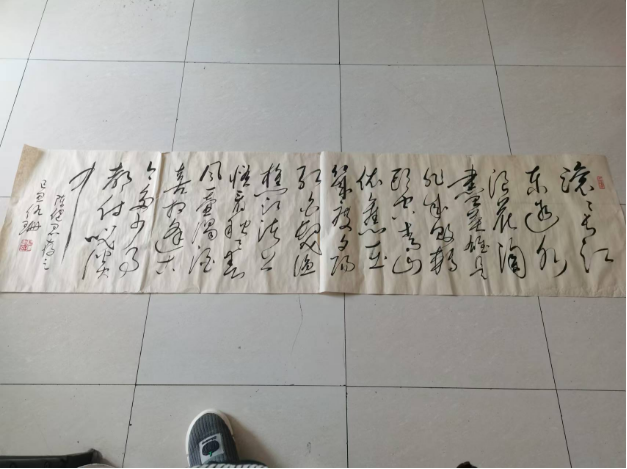 滚〻长江
东逝水
浪花淘
尽英雄是
非成败转
头空青山
依旧在
几度夕阳
红白发渔
樵江渚上
惯看秋月春
风一壶浊酒
喜相逢古
今多少事
都付笑谈
中